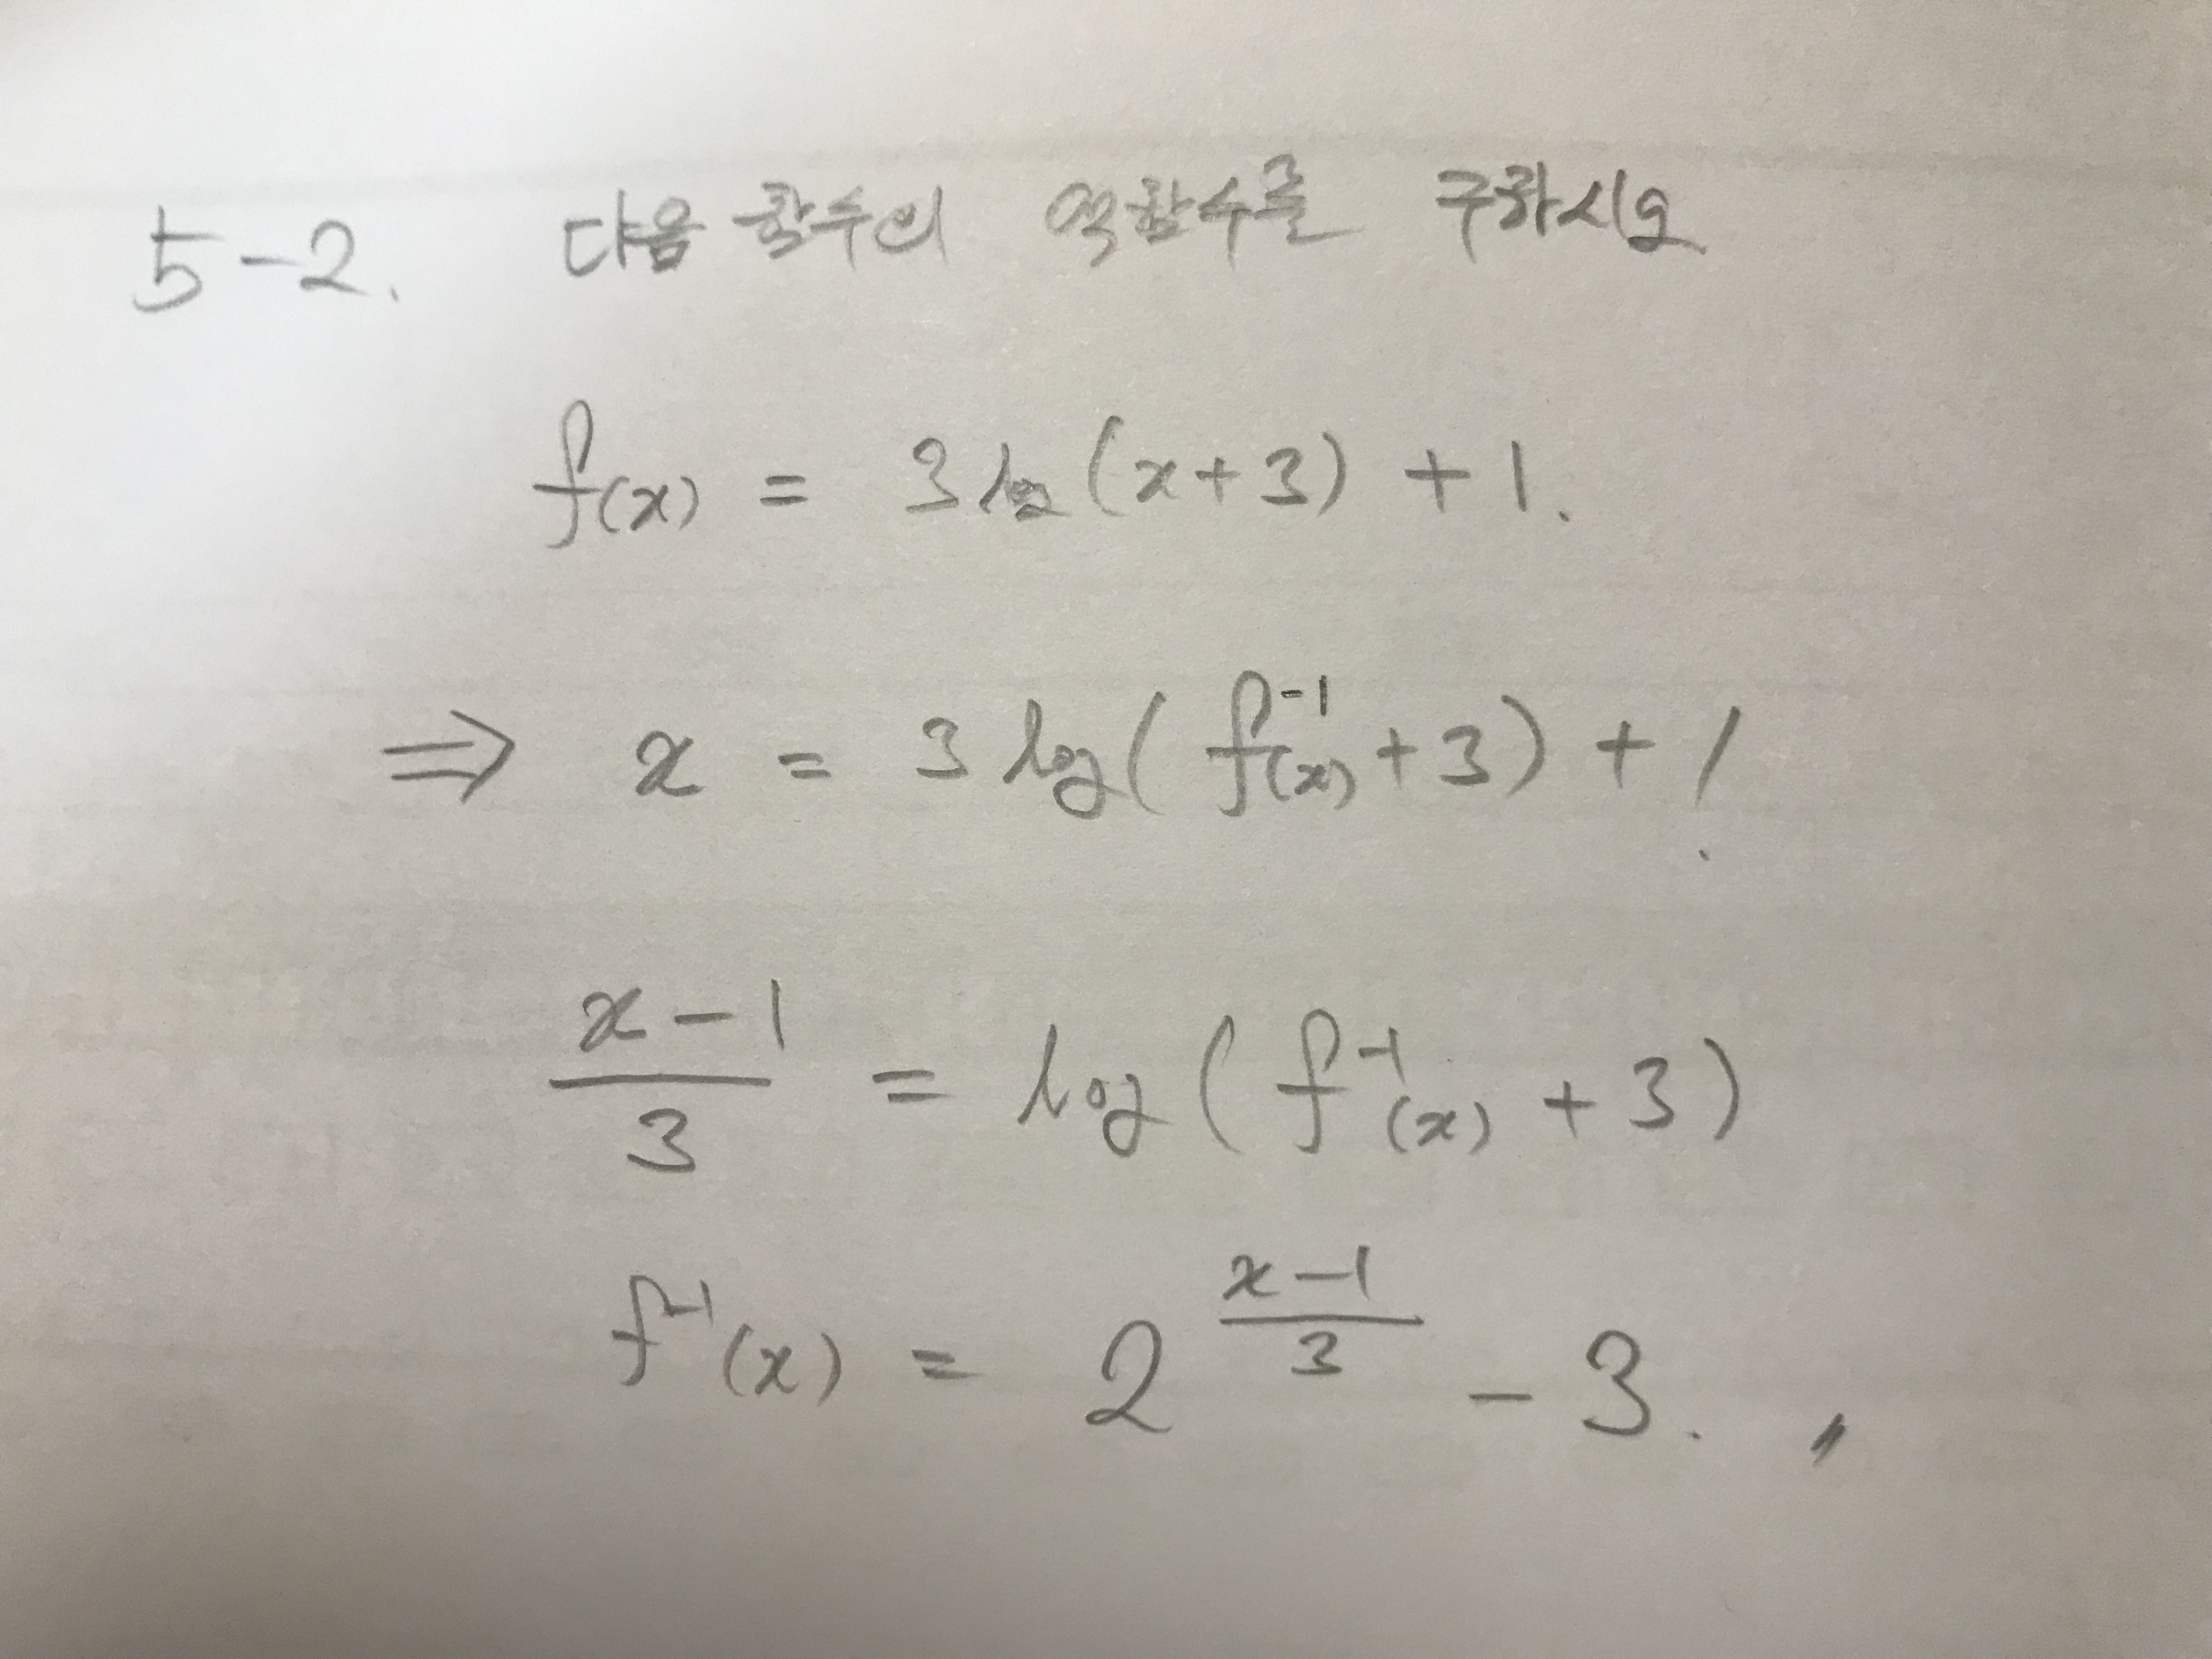 5-2. 다음 함수의 역함수를 구하시오
f(x) = 3 log (x+3) + 1.
⇒ x = 3 log( f⁻¹(x) + 3) + 1.
x-1/3 = log ( f⁻¹(x) + 3)
f⁻¹(x) = 2^(x-1/3) - 3.